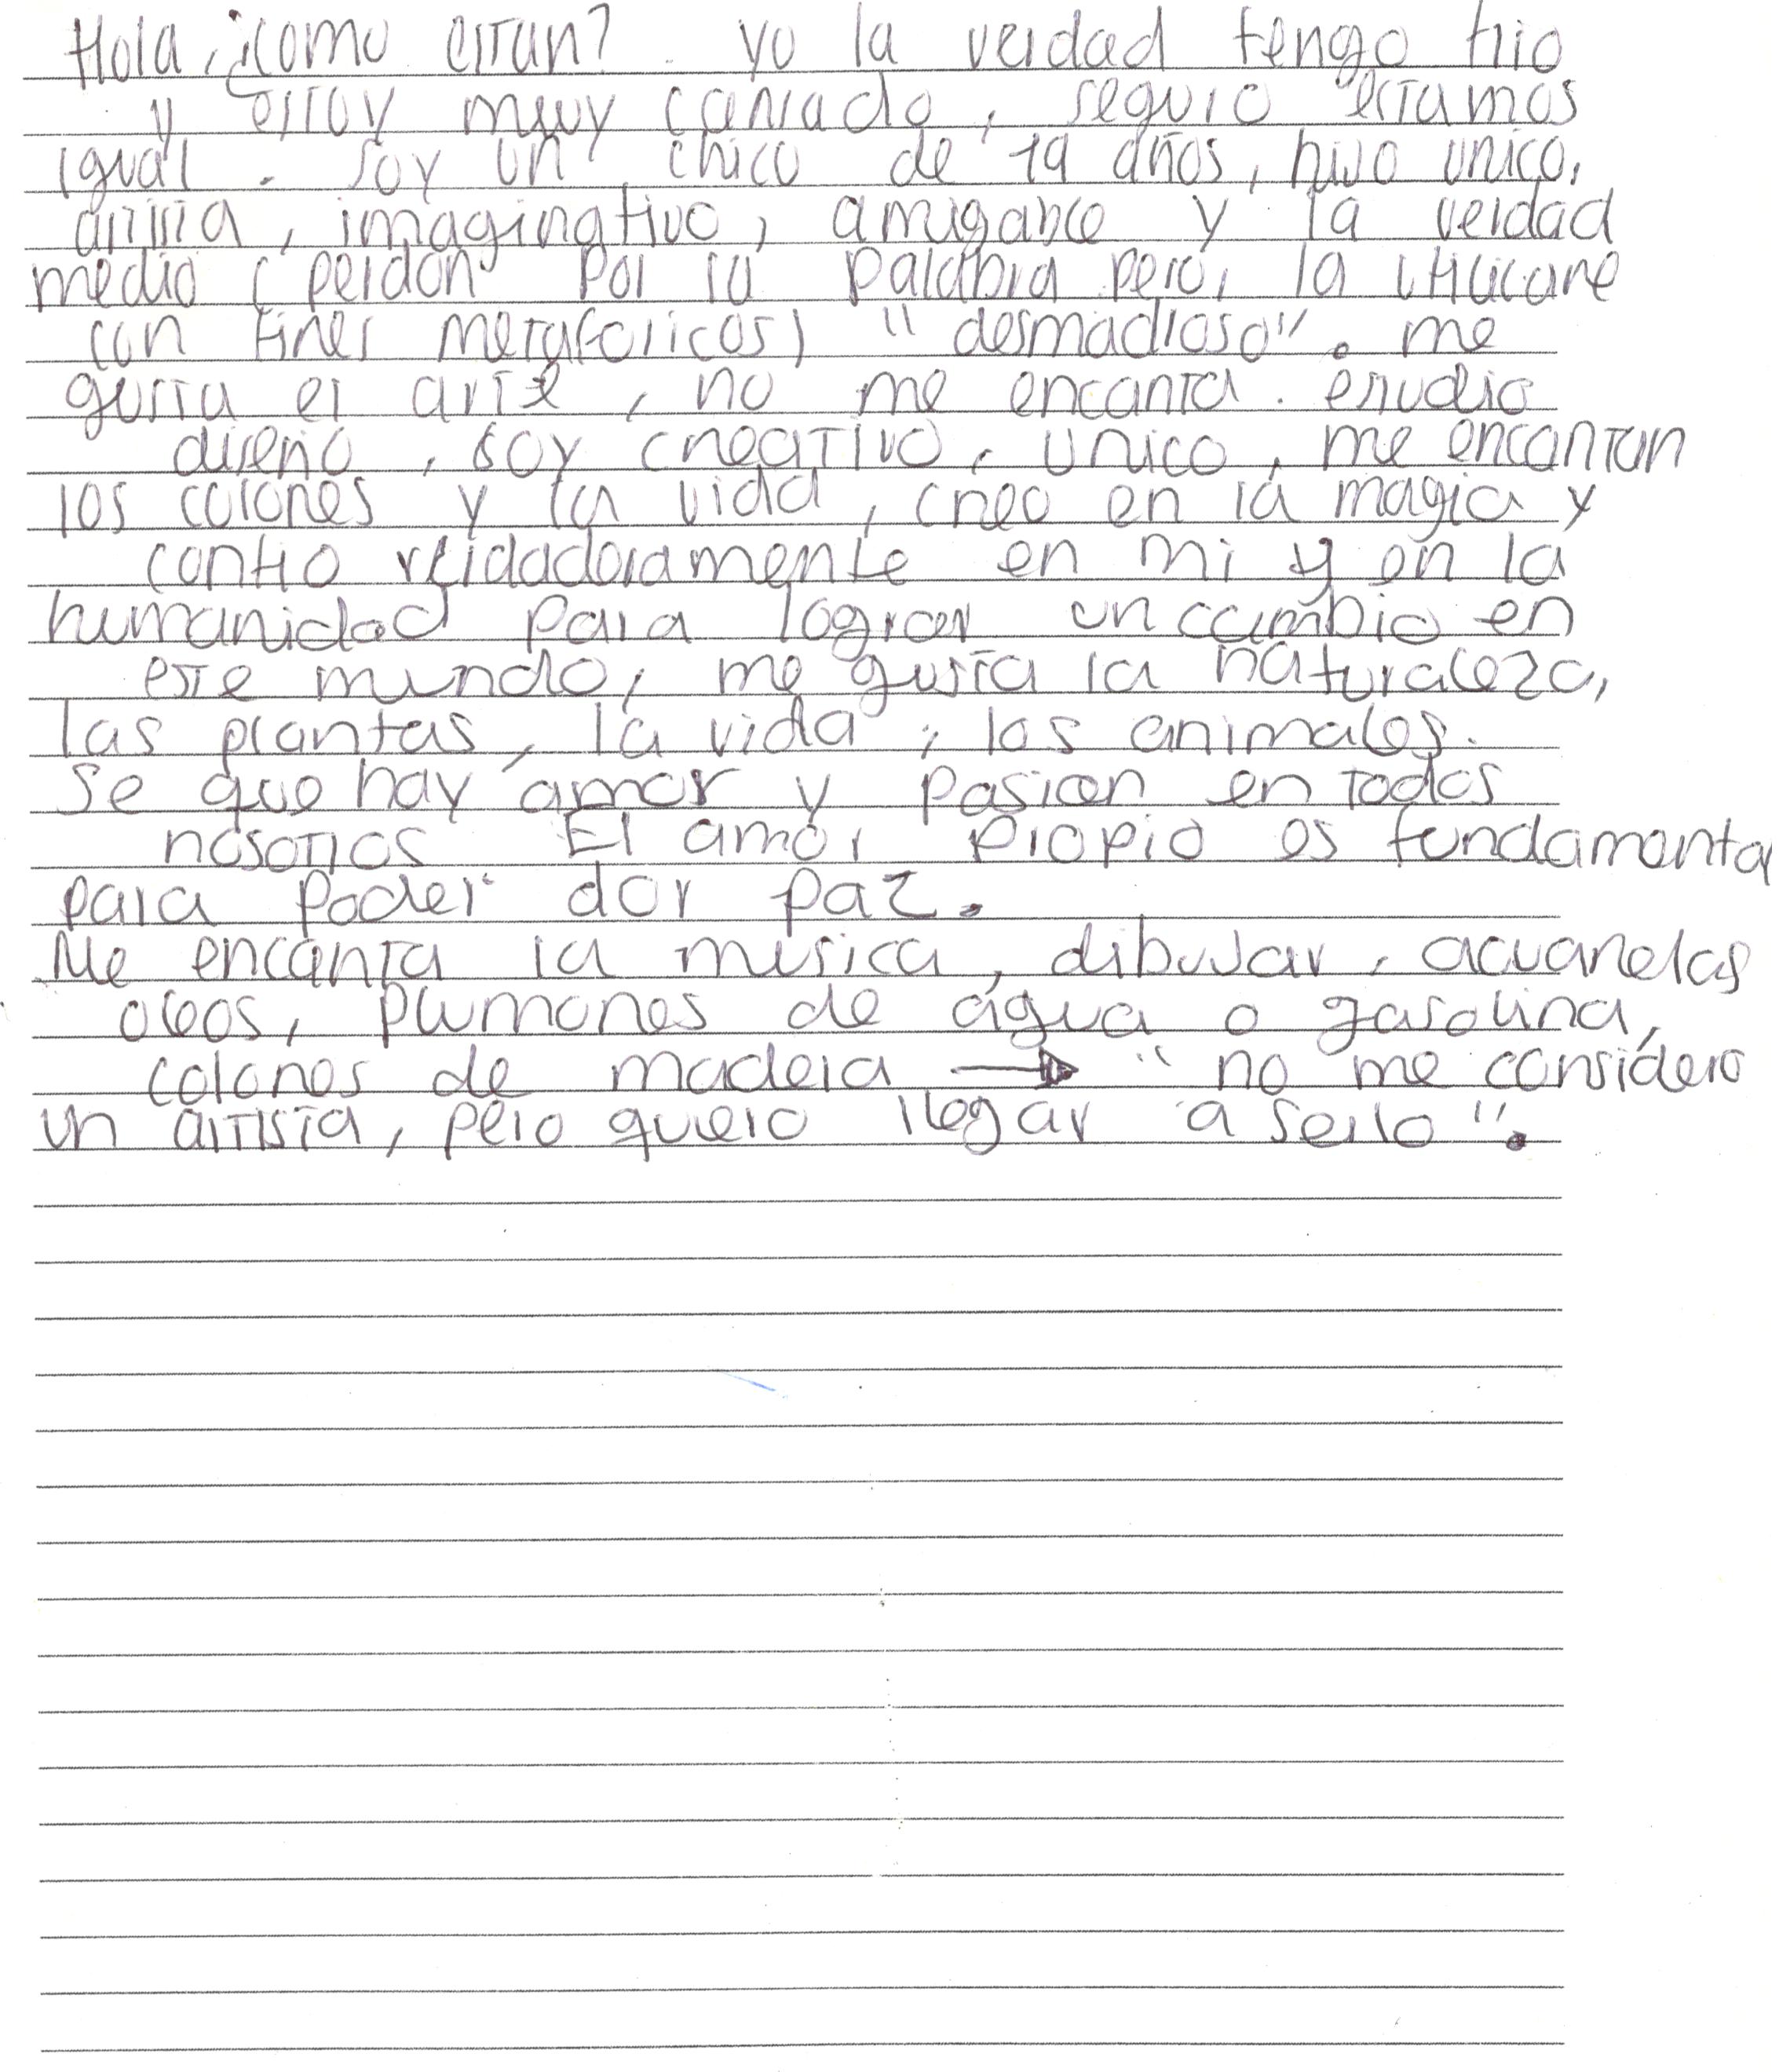 Hola, ¿como estan? yo la verdad tengo frio
y estoy muy cansado, seguro estamos
igual. Soy un chico de 19 años, hijo unico,
artista, imaginativo, amigable y la verdad
medio (perdon por la palabra pero, la utilizare
con fines metaforicos) "desmadroso". me
gusta el arte, no me encanta. estudio
diseño, soy creativo, unico, me encantan
los colores y la vida, creo en la magia y
confio verdaderamente en mi y en la
humanidad para lograr un cambio en
este mundo, me gusta la naturaleza,
las plantas, la vida, los animales.
Se que hay amor y pasion en todos
nosotros El amor propio es fundamental
para poder dar paz.
Me encanta la musica, dibujar, acuarelas
oleos, plumones de agua o gasolina,
colores de madera → "no me considero
un artista, pero quiero llegar a serlo".